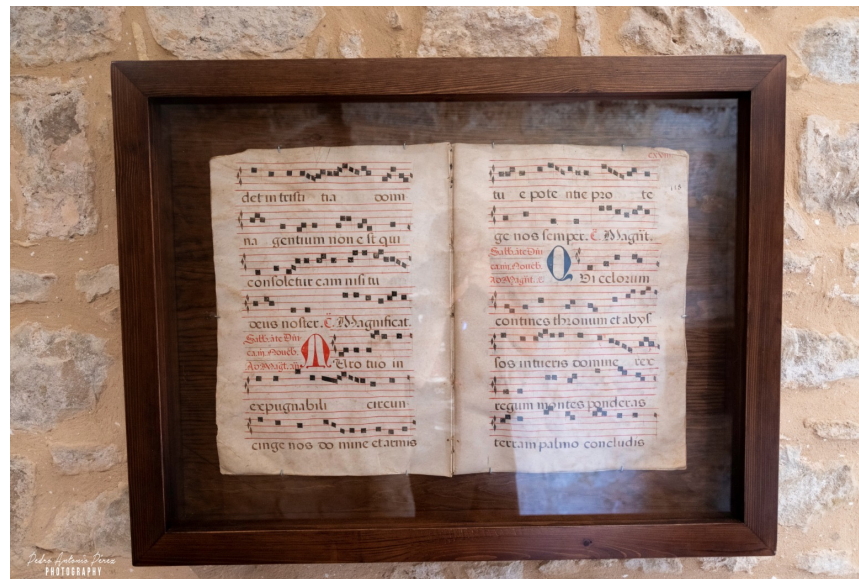 det in tristi tia domi
na gentium non est qui
consoletur eam nisi tu
deus noster. C. Magnificat.
Sabbato Din
cam. Noueb.
Ad Magt. an
Muro tuo in
expugnabili circun
cinge nos do mine et armis
118
tu e pote ntie pro te
ge nos semper. C. Magnt.
Sabbato Din
cam. Noueb.
Ad Magnt.
Qui celorum
contines thronum et abys
sos intueris domine rex
regum montes ponderas
terram palmo concludis
Pedro Antonio Pérez
PHOTOGRAPHY